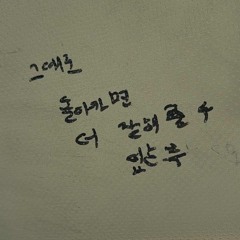 그때로
돌아가면
더 잘해줄 수
있는데